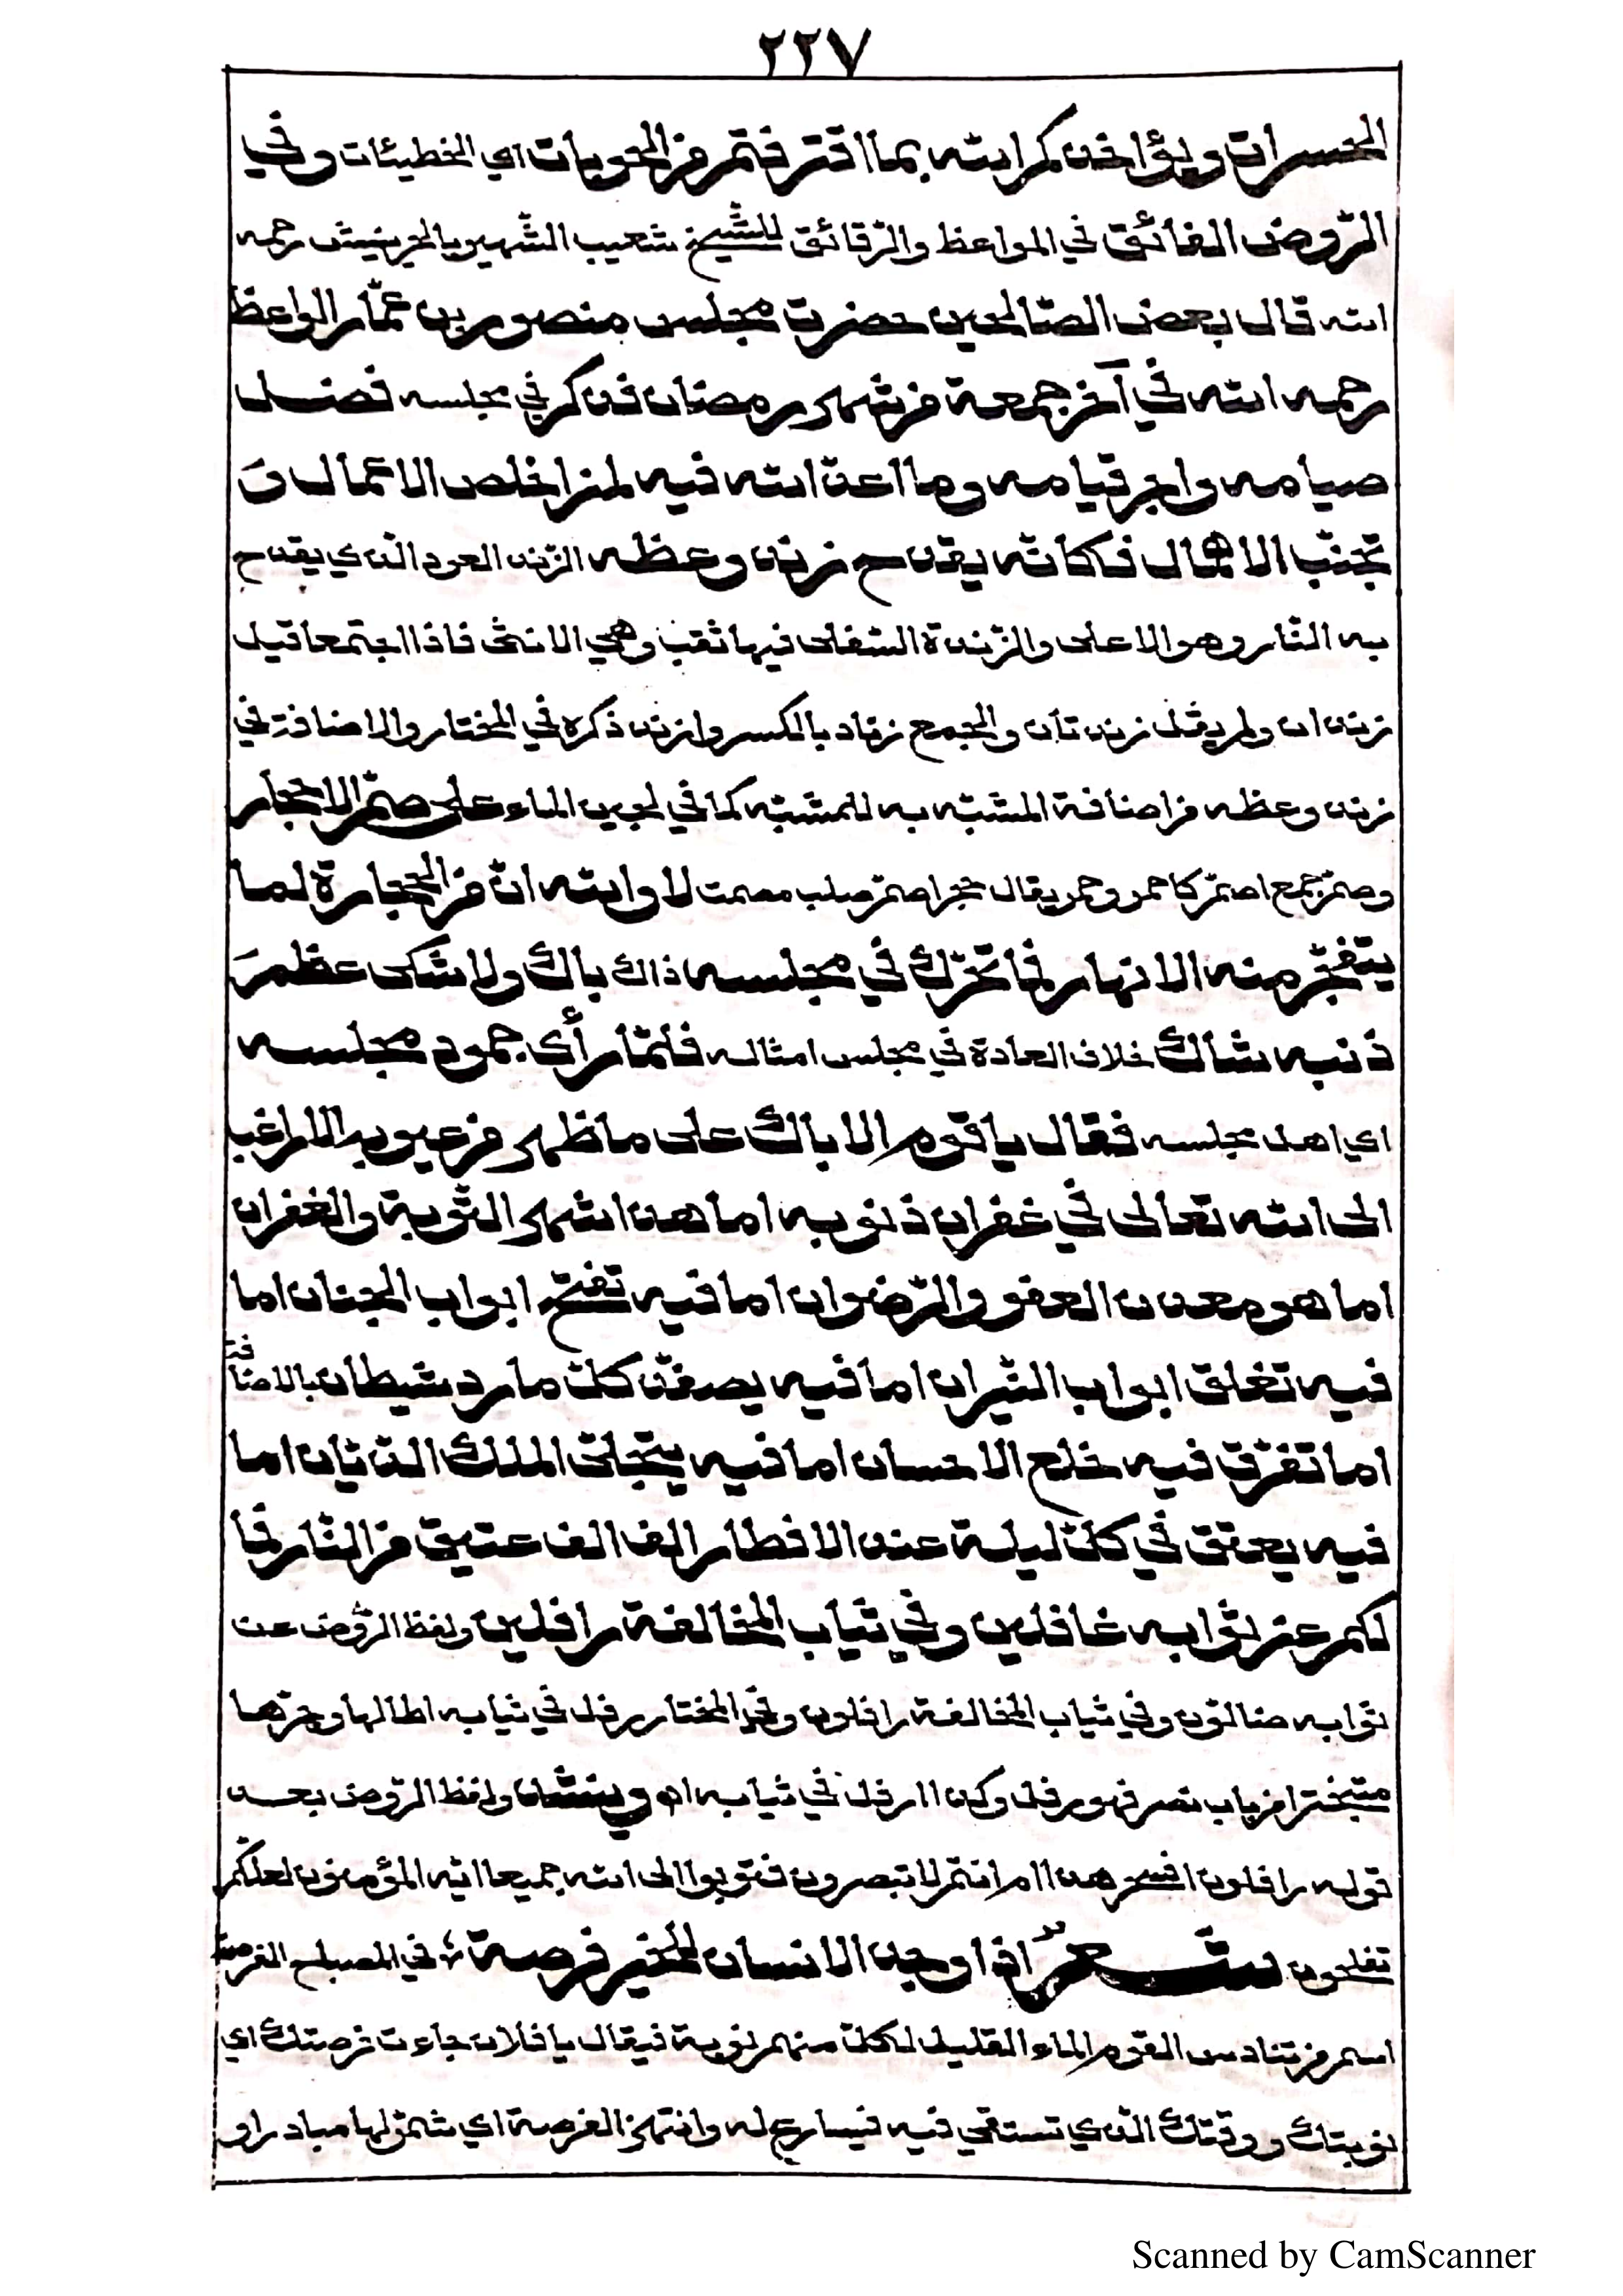 ٢٢٧
الخسرات ويؤاخذكم الله بما اقترفتم من الحوبات اي الخطيئات وفي
الرّوض الفائق في المواعظ والرّقائق للشّيخ شعيب الشّهير بالحريفيش رحمه
الله قال بعض الصّالحين حضرت مجلس منصور بن عمّار الواعظ
رحمه الله في آخر جمعة من شهر رمضان فذكر في مجلسه فضل
صيامه واجر قيامه وما اعدّ الله فيه لمن اخلص الاعمال وَ
تجنّب الاهمال فكانّه يقدح زند وعظه الزّند العود الّذي يقدح
به النّار وهو الاعلى والزّندة السّفلى فيها ثقب وهي الانثى فاذا اجتمعا قيل
زندان ولم يقل زندتان والجمع زناد بالكسر وازند ذكره في المختار والاضافة في
زند وعظه من اضافة المشبّه به للمشبّه كما في لجين الماء على صمّ الاحجار
وصمّ جمع اصمّ كاحمر وحمر يقال حجر اصمّ صلب مصمت لا والله انّ من الحجارة لما
يتفجّر منه الانهار فما تحرّك في مجلسه ذاك باك ولا شكى عظمَ
ذنبه شاك خلاف العادة في مجلس امثاله فلمّا رأى جمود مجلسه
اي اهل مجلسه فقال يا قوم الا باك على ما ظهر من عيوبه الا راغب
الى الله تعالى في غفران ذنوبه اما هذا شهر التّوبة والغفران
اما هو معدن العفو والرّضوان اما فيه تفتح ابواب الجنان اما
فيه تغلق ابواب النّيران اما فيه يصفّد كلّ مارد شيطان بالاضافة
اما تفرّق فيه خلع الاحسان اما فيه يتجلّى الملك الدّيّان اما
فيه يعتق في كلّ ليلة عند الافطار الف الف عتيق من النّار فما
لكم عن ثوابه غافلين وفي ثياب المخالفة رافلين ولفظ الرّوض عن
ثوابه ضالّون وفي ثياب المخالفة رافلون وفي المختار رفل في ثيابه اطالها وجرّها
متبخترا من باب نصر فهو رفل وكذا ارفل في ثيابه اه وينشد ولفظ الرّوض بعد
قوله رافلون افسحر هذا ام انتم لا تبصرون فتوبوا الى الله جميعا ايّه المؤمنون لعلّكم
تفلحون شعر اذا وجد الانسان للخير فرصة في المصباح الفرصة
اسم من تنادس القوم الماء القليل لكلّ منهم نوبة فيقال يا فلان جاءت فرصتك اي
نوبتك ووقتك الّذي تستقي فيه فيسارع له وانتهز الفرصة اي شمّر لها مبادرا و
Scanned by CamScanner